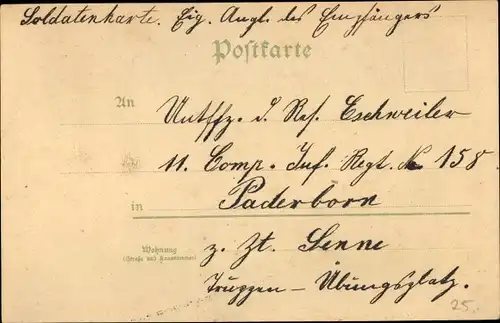 Soldatenkarte. Eig. Angl. des Empfängers
Postkarte
An Untffz. d. Res. Eschweiler
11. Comp. Inf. Regt. No 158
in Paderborn
Wohnung
(Straße und Hausnummer)
z. Zt. Senne
Truppen-Übungsplatz.
25.